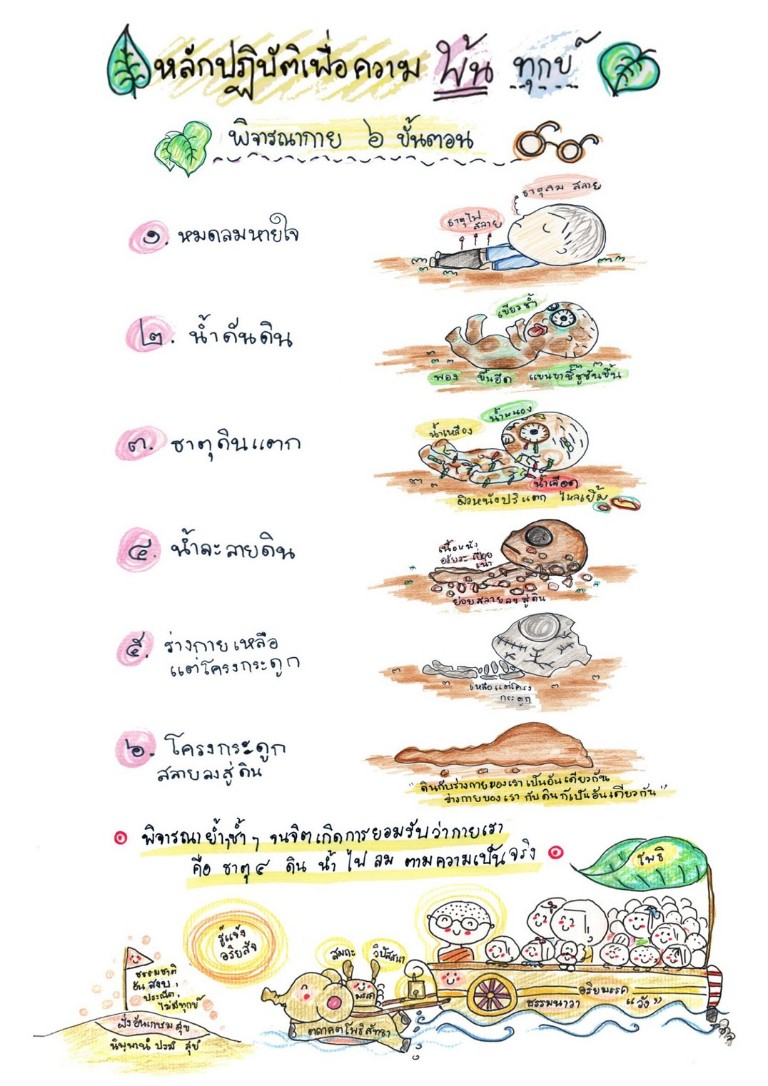 หลักปฏิบัติเพื่อความ พ้น ทุกข์
พิจารณากาย ๖ ขั้นตอน
๑. หมดลมหายใจ
ธาตุลม สลาย
ธาตุไฟ
สลาย
๒. น้ำดันดิน
เขียวช้ำ
พอง ขึ้นอืด แขนขาชี้ชูชันขึ้น
๓. ธาตุดินแตก
น้ำเหลือง
น้ำหนอง
น้ำเลือด
ผิวหนังปริแตก ไหลเยิ้ม
๔. น้ำละลายดิน
เนื้อหนัง
อวัยวะเปื่อย
เน่า
ย่อยสลายลงสู่ดิน
๕. ร่างกายเหลือ
แต่โครงกระดูก
เหลือแต่โครง
กระดูก
๖. โครงกระดูก
สลายลงสู่ดิน
"ดินกับร่างกายของเราเป็นอันเดียวกัน
ร่างกายของเรา กับดินก็เป็นอันเดียวกัน"
พิจารณาย้ำ,ซ้ำ ๆ จนจิตเกิดการยอมรับว่ากายเรา
คือ ธาตุ ๔ ดิน น้ำ ไฟ ลม ตามความเป็นจริง
โพธิ
รู้แจ้ง
อริยสัจ
สมถะ
วิปัสสนา
มรรค
ธรรมชาติ
อันสงบ,
ประณีต,
ไม่มีทุกข์
ฝั่งอันเกษมสุข
นิพพานํ ปรมํ สุขํ
ตถาคตโพธิสัทธา
อริยมรรค
ธรรมนาวา "วัง"